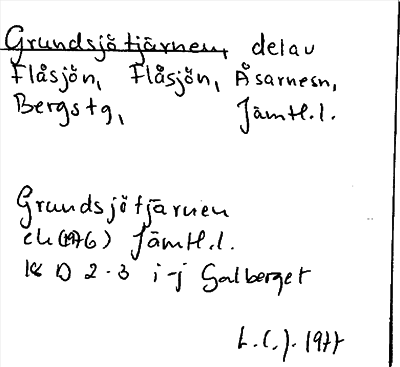 Grundsjötjärnen, del av
Flåsjön, Flåsjön, Åsarnesn,
Bergstg, Jämtl.l.
Grundsjötjärnen
ek (1976) Jämtl.l.
18 D 2-3 i-j Galberget
L.C.J. 1977